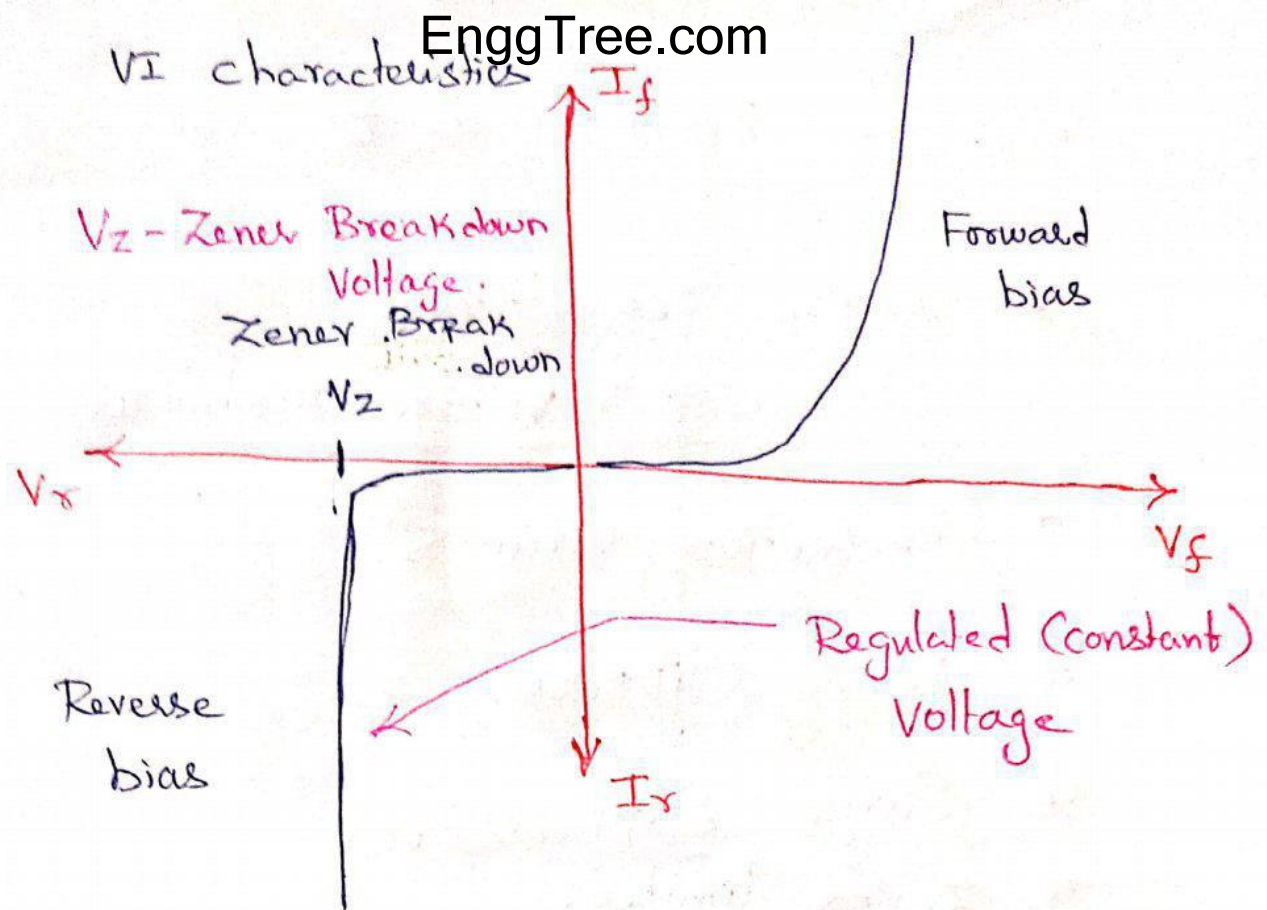 EnggTree.com
VI characteristics
If
Vz - Zener Breakdown
Voltage.
Zener Break
down
Vz
Forward
bias
Vr
Vf
Regulated (constant)
Voltage
Reverse
bias
Ir